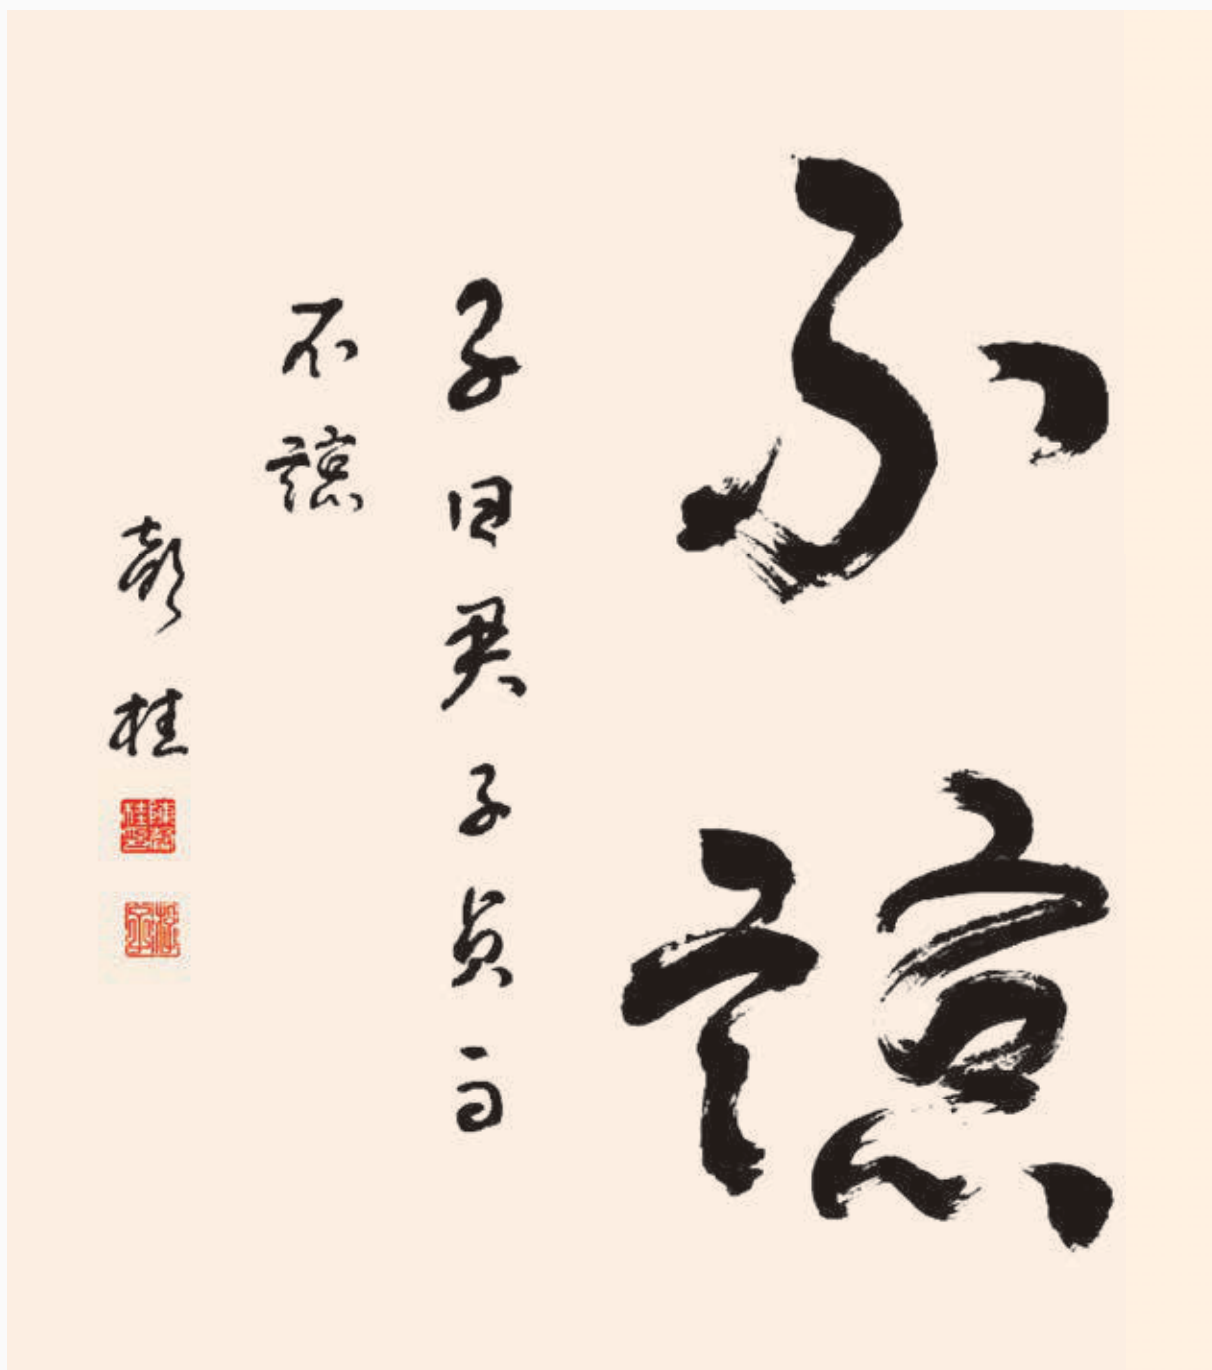 不諒
子曰君子貞而
不諒
彭桂